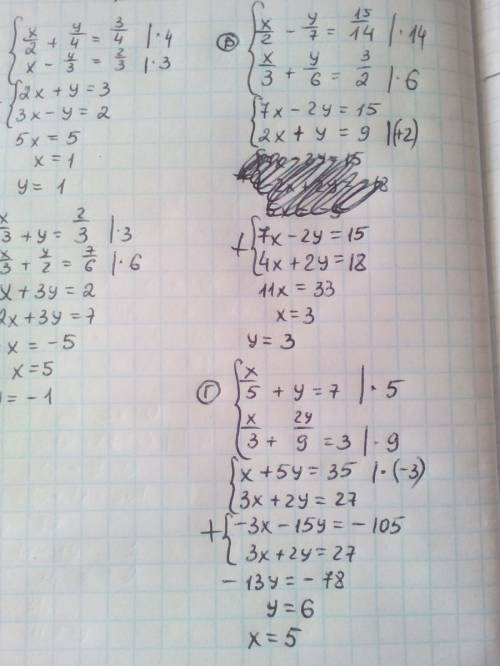 x/2 + y/4 = 3/4 |·4
x - y/3 = 2/3 |·3
2x + y = 3
3x - y = 2
5x = 5
x = 1
y = 1
x/3 + y = 2/3 |·3
x/3 + y/2 = 7/6 |·6
x + 3y = 2
2x + 3y = 7
x = -5
x = 5
y = -1
В x/2 - y/7 = 15/14 |·14
x/3 + y/6 = 3/2 |·6
7x - 2y = 15
2x + y = 9 |(·2)
+ 7x - 2y = 15
4x + 2y = 18
11x = 33
x = 3
y = 3
Г x/5 + y = 7 |·5
x/3 + 2y/9 = 3 |·9
x + 5y = 35 |·(-3)
3x + 2y = 27
+ -3x - 15y = -105
3x + 2y = 27
-13y = -78
y = 6
x = 5